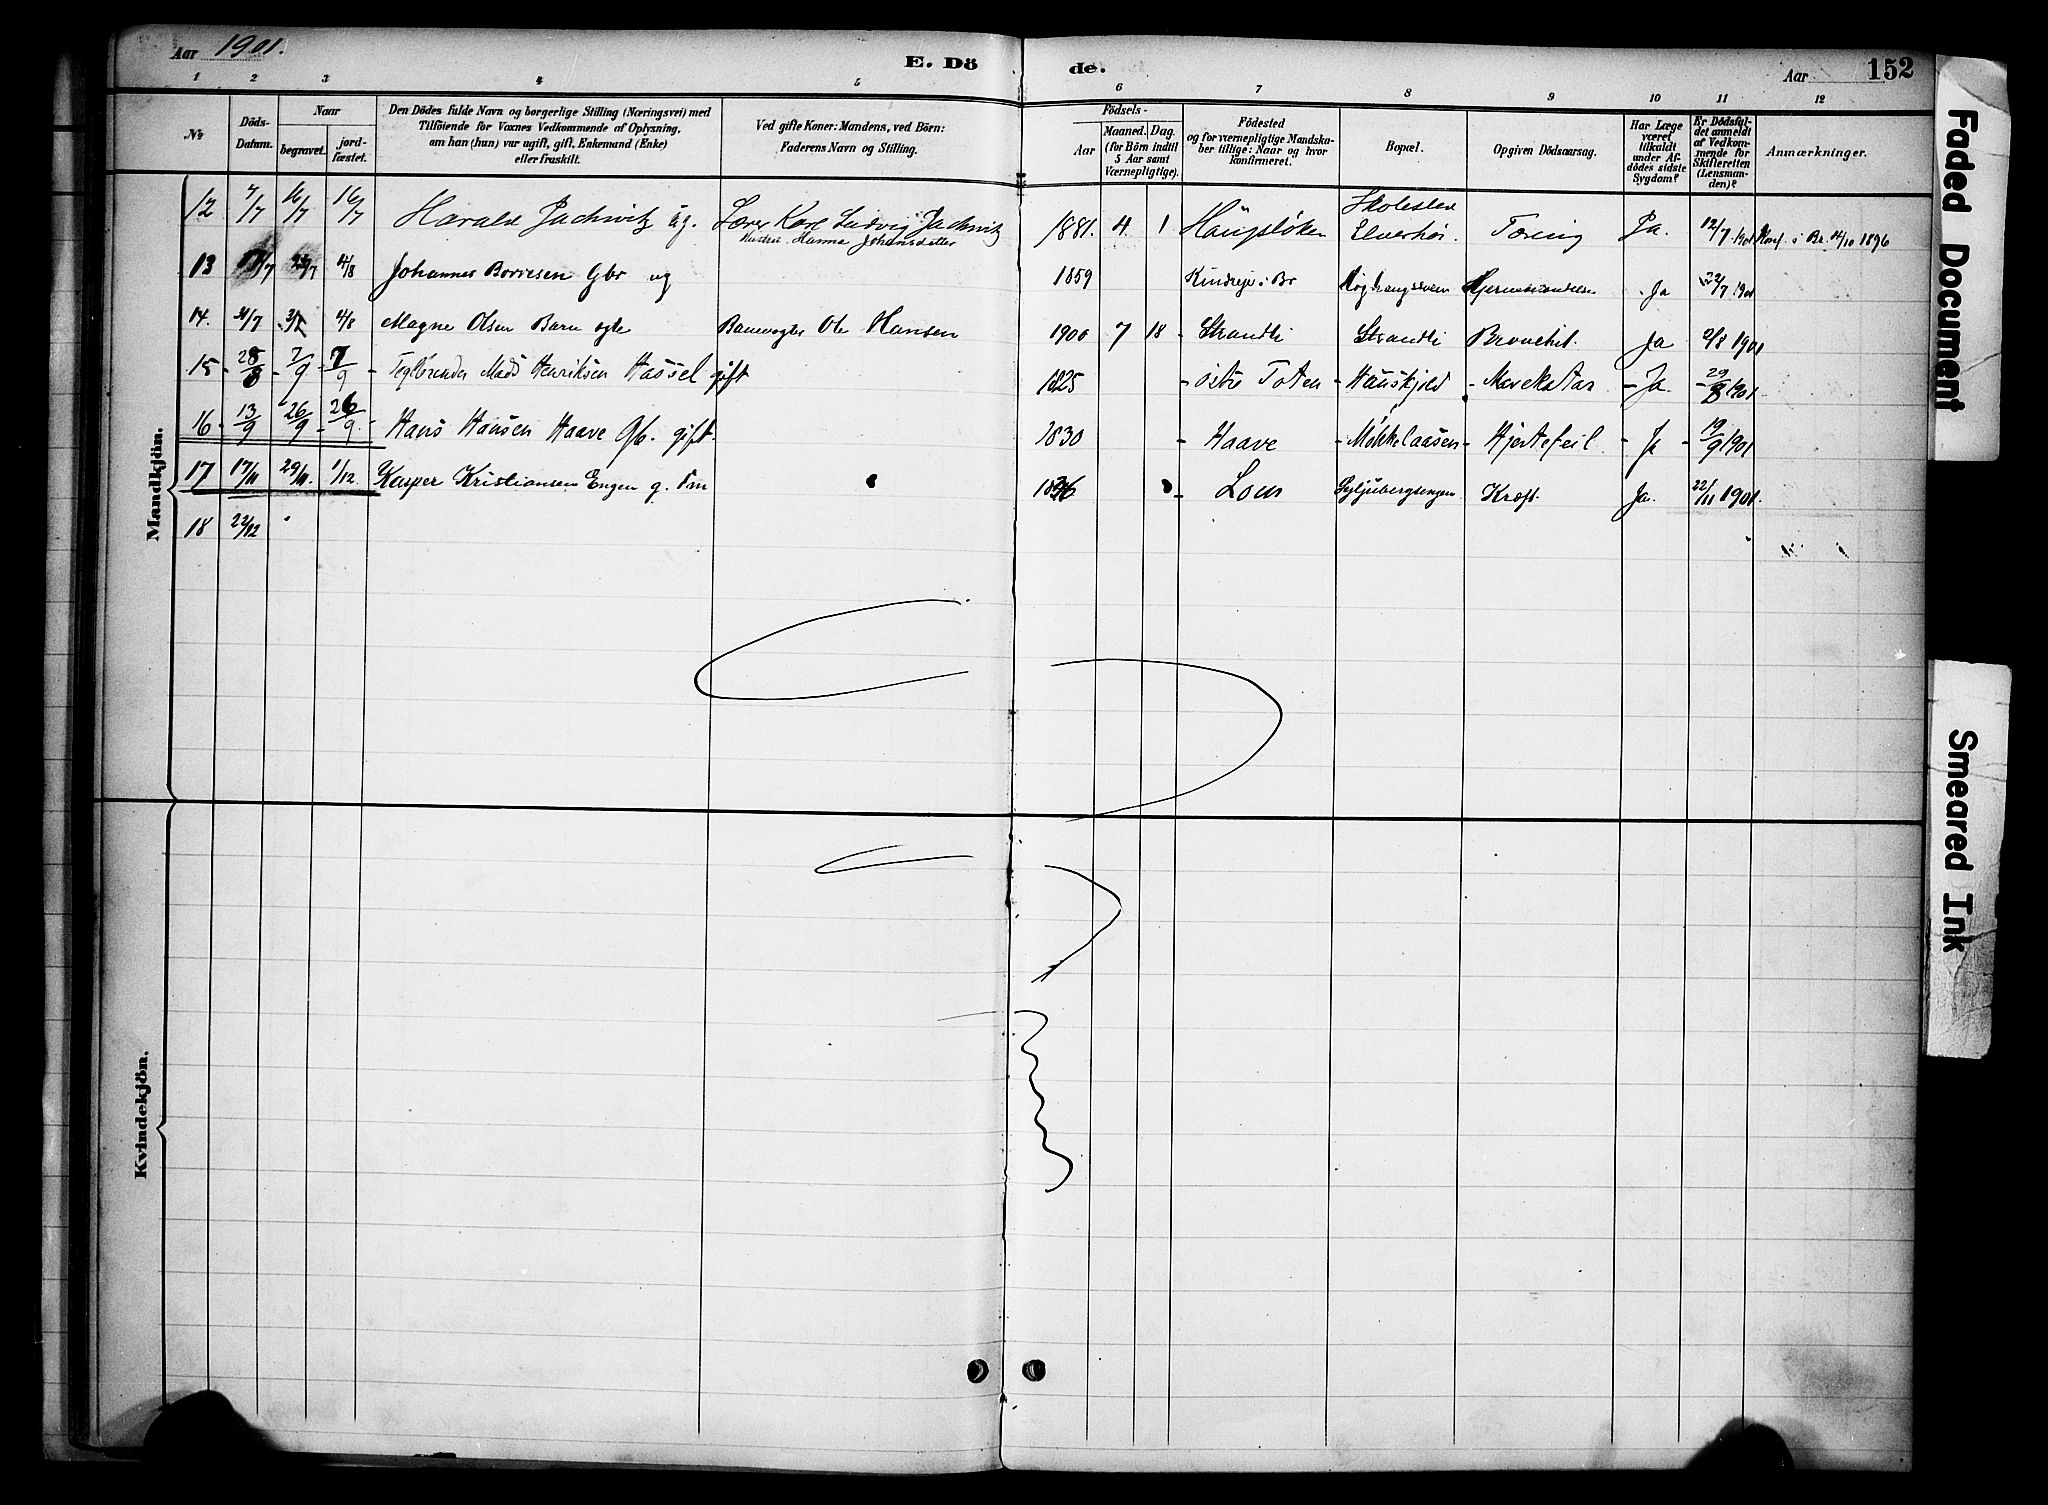 Aar 1901.
E. Dö
de.
Aar
152
1 2 3 4 5 6 7 8 9 10 11 12
No
Döds-
Datum.
Naar
begravet.
jord-
fæstet.
Den Dödes fulde Navn og borgerlige Stilling (Næringsvei) med
Tilföiende for Voxnes Vedkommende af Oplysning,
om han (hun) var ugift, gift, Enkemand (Enke)
eller fraskilt.
Ved gifte Koner: Mandens, ved Börn:
Faderens Navn og Stilling.
Födsels-
Aar
Maaned. Dag.
(for Börn indtil
5 Aar samt
Værnepligtige).
Födested
og for værnepligtige Mandska-
ber tillige: Naar og hvor
konfirmeret.
Bopæl.
Opgiven Dödsaarsag.
Har Læge
været
tilkaldt
under Af-
dödes sidste
Sygdom?
Er Dödsfal-
det anmeldt
af Vedkom-
mende for
Skifteretten
(Lensman-
den)?
Anmærkninger.
Mandkjön.
12 7/7 16/7 16/7 Harald Jachwitz ug. Lærer Karl Ludvig Jachwitz 1881. 4 1 Haugsløken Elverhøi. Tæring Ja. 12/7 1901 Konf. i Br. 1896
Hustru Hanna Johansdatter
13 4/8 Johannes Gbr ug 1859 i Br Ja 22/7 1901
14. 31/7 4/8 Magne Olsen Barn ægte Banevogter Ole Hansen 1900 7 18 Strandli Strandli Bronchit. Ja 2/8 1901
15 - 28/8 - 7/9 - 7/9 - Teglbrænder Mads Henriksen Hassel gift 1825 - østre Toten - Hauskjold - - Ja - 29/8 1901
16 - 13/9 26/9 - 26/9 - Hans Hansen Haave Gb. gift. 1830 - Haave - Mökkelaasen - Hjertefeil - Ja - 19/9 1901
17 17/11 29/11 1/12. Kasper Kristiansen Engen g. Fm - Kræft. Ja. 22/11 1901.
18 22/12
Kvindekjön.
Faded Document
Smeared Ink